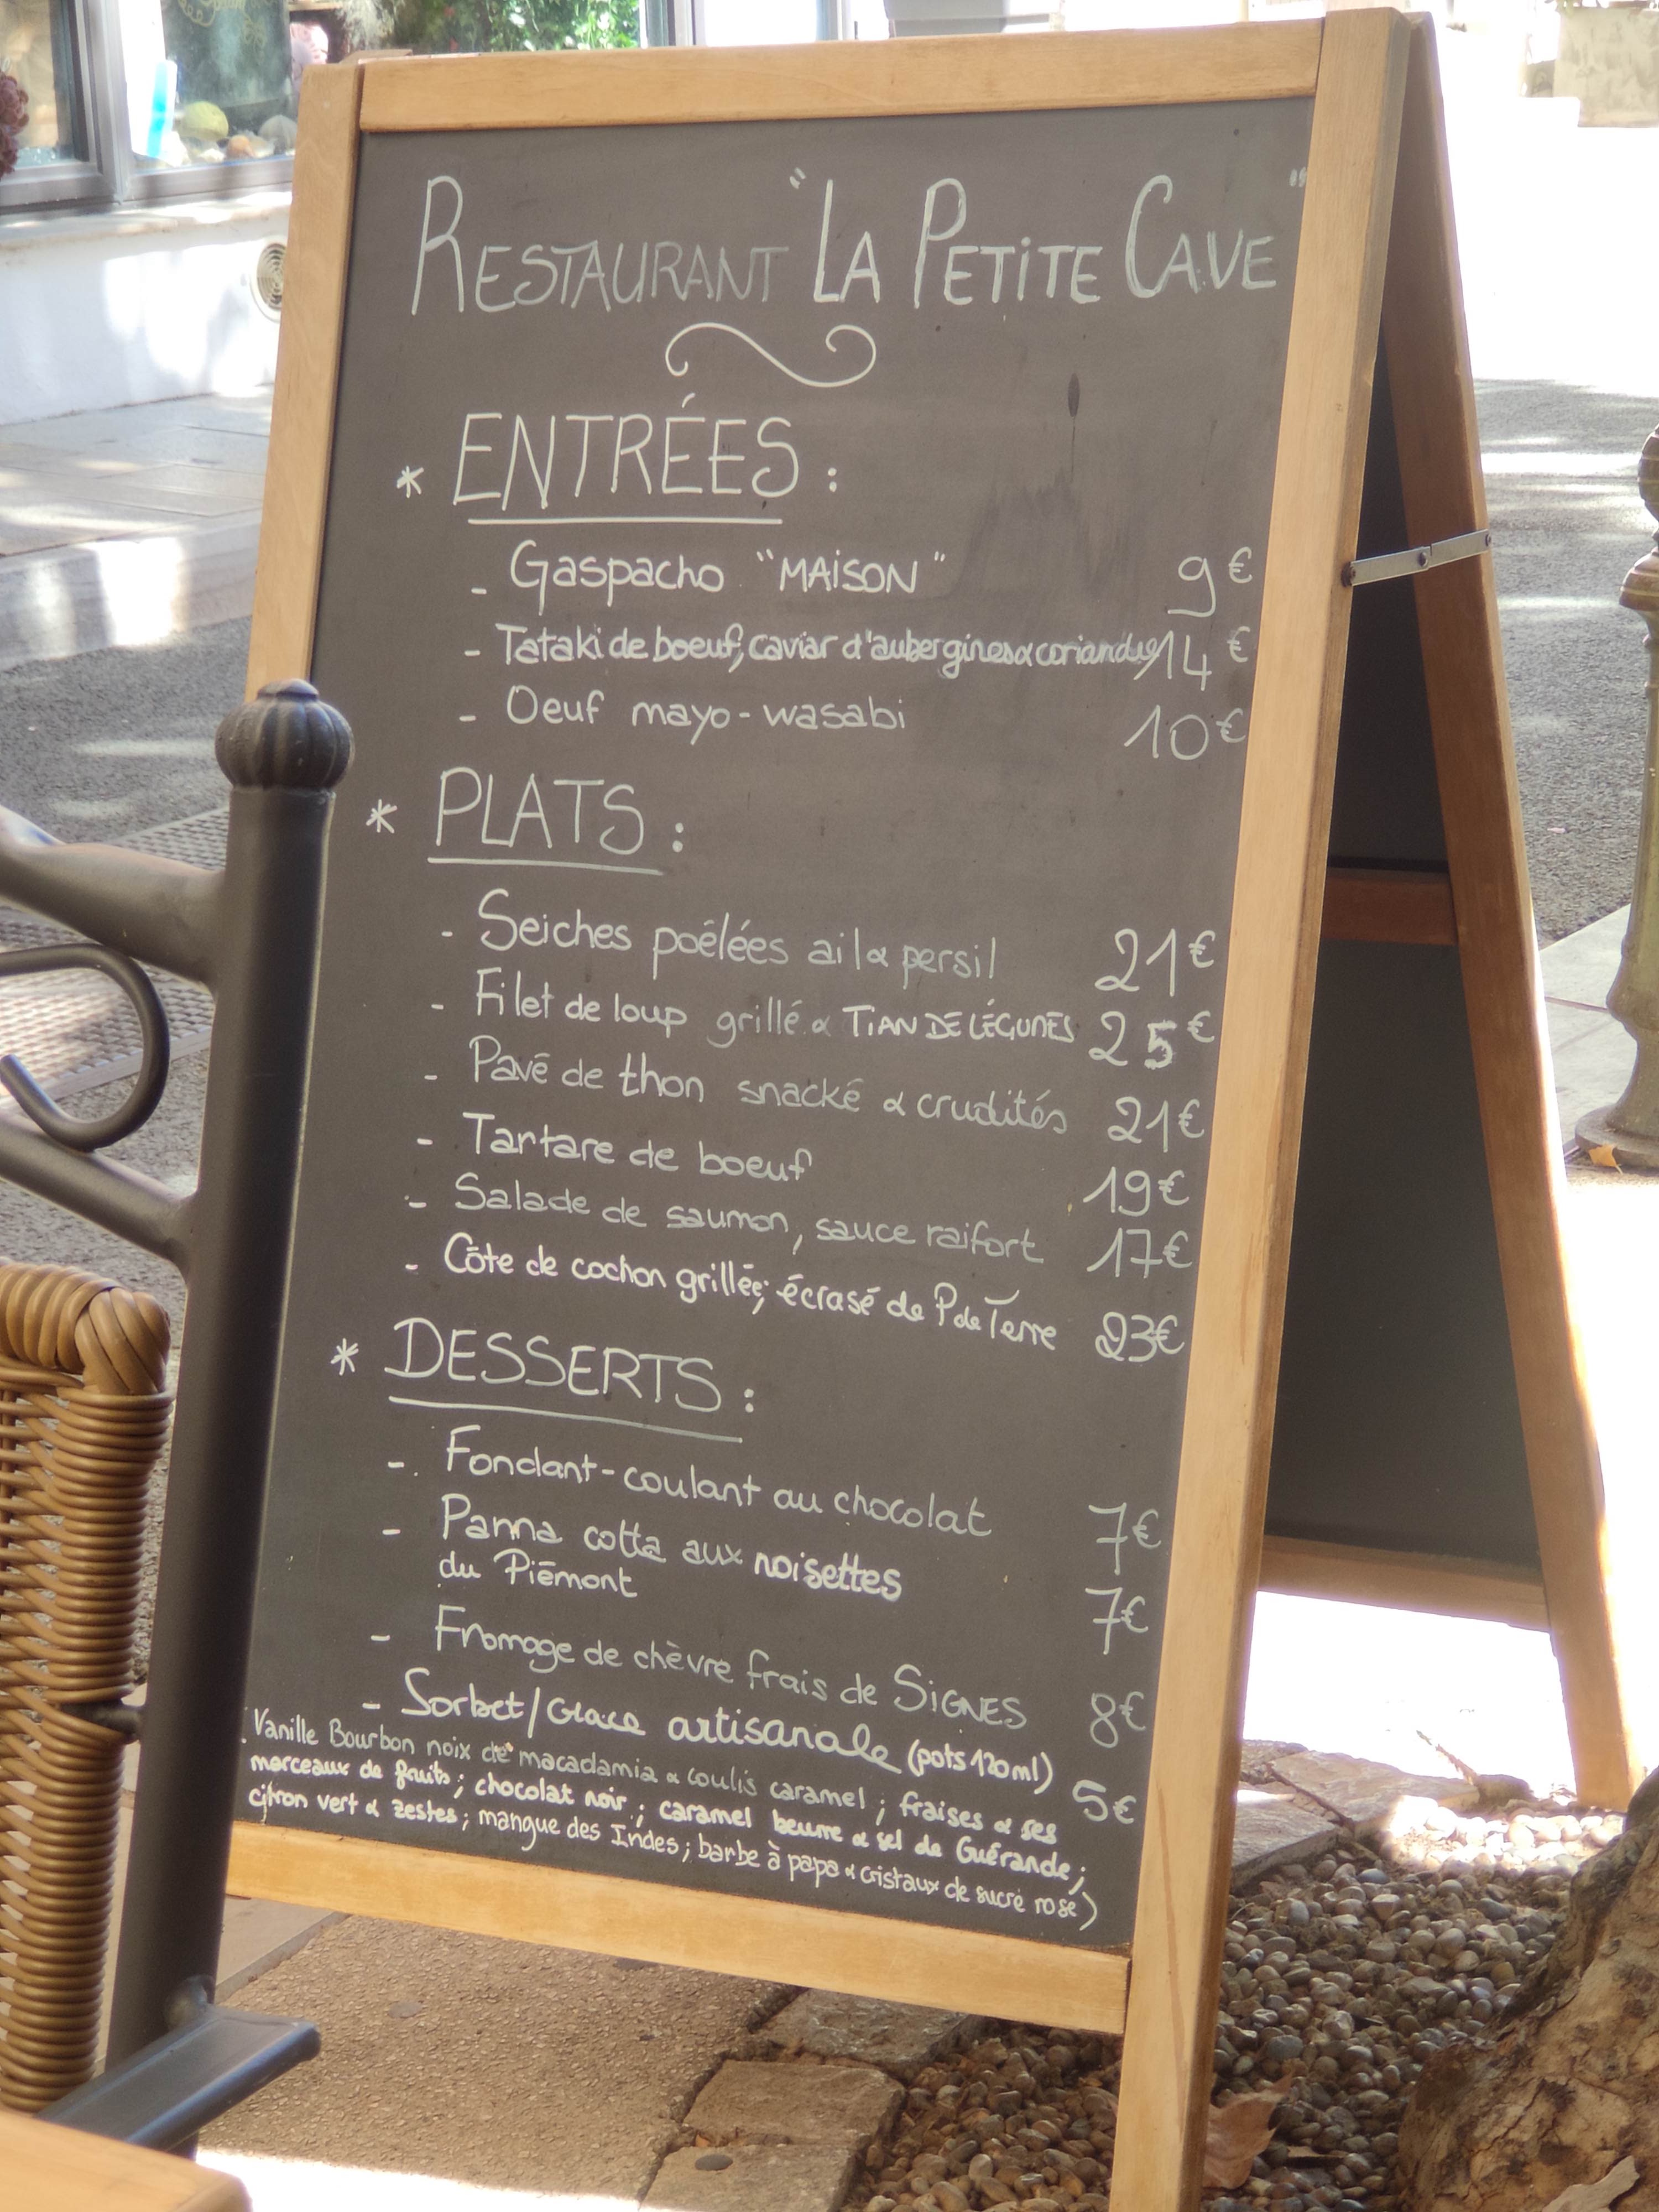 RESTAURANT "LA PETITE CAVE"
* ENTRÉES :
- Gaspacho "MAISON" 9€
- Tataki de boeuf, caviar d'aubergines & coriandre 14€
- Oeuf mayo-wasabi 10€
* PLATS :
- Seiches poêlées ail & persil 21€
- Filet de loup grillé & TIAN DE LÉGUMES 25€
- Pavé de thon snacké & crudités 21€
- Tartare de boeuf 19€
- Salade de saumon, sauce raifort 17€
- Côte de cochon grillée; écrasé de P de Terre 23€
* DESSERTS :
- Fondant-coulant au chocolat 7€
- Panna cotta aux noisettes
du Piémont 7€
- Fromage de chèvre frais de SIGNES 8€
- Sorbet/Glace artisanale (pots 120ml) 5€
Vanille Bourbon noix de macadamia & coulis caramel ; fraises & ses
morceaux de fruits ; chocolat noir ; caramel beurre & sel de Guérande ;
citron vert & zestes ; mangue des Indes ; barbe à papa & cristaux de sucre rosé)